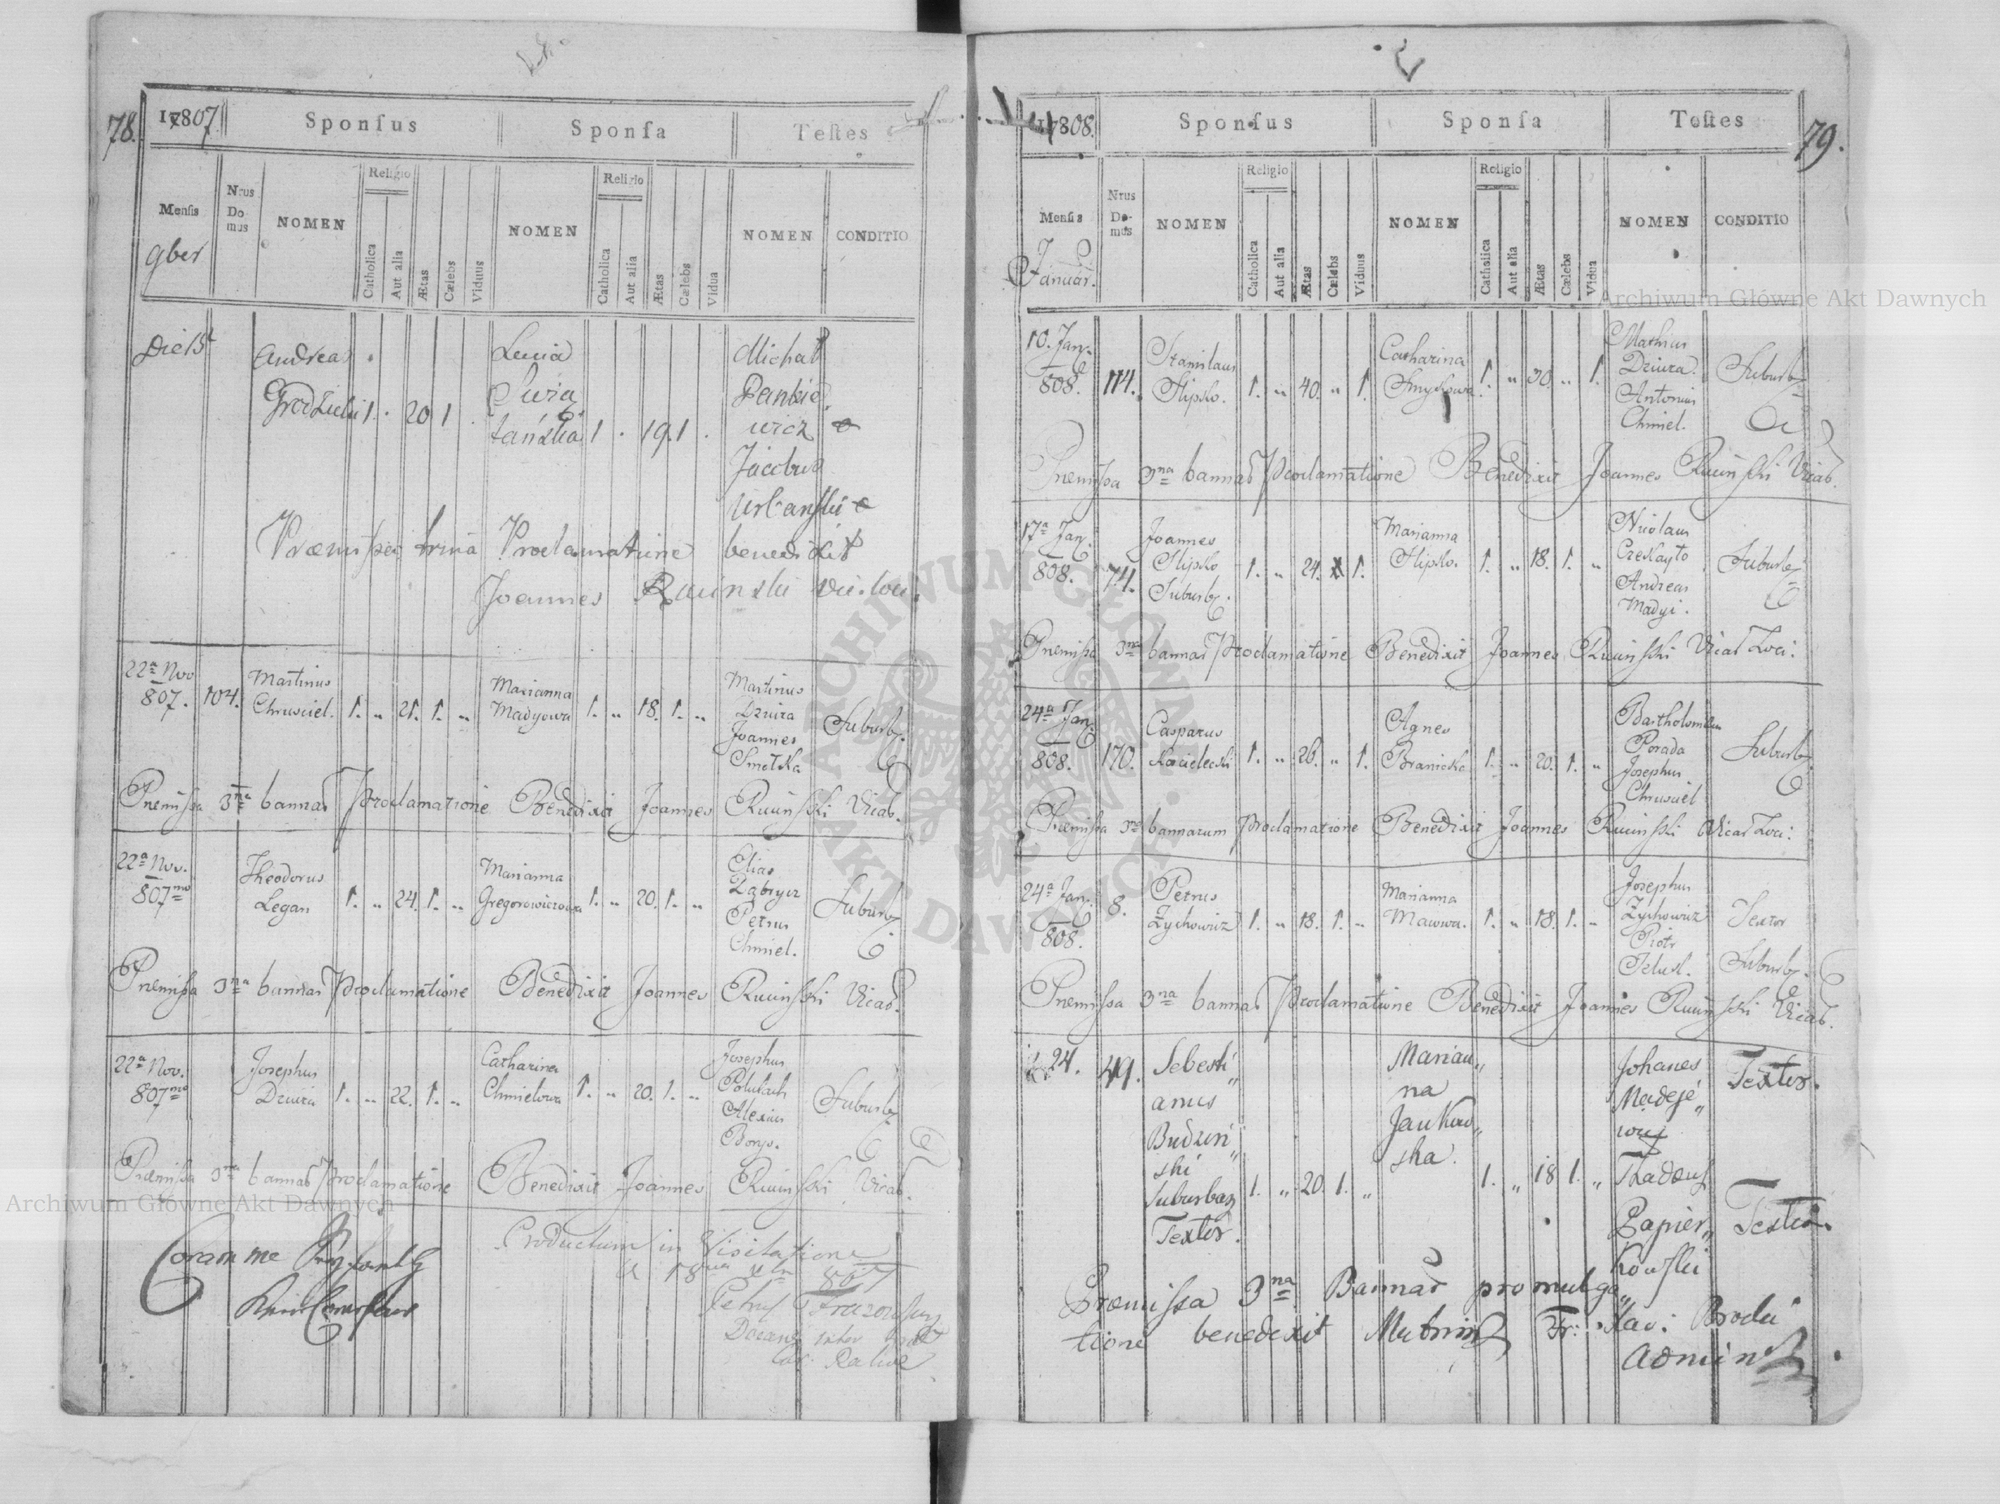 78.
1807
Sponsus
Sponsa
Testes
Mensis
9ber
Nrus Domus
NOMEN
Religio
Catholica
Aut alia
Ætas
Cælebs
Viduus
NOMEN
Religio
Catholica
Aut alia
Ætas
Cælebs
Vidua
NOMEN
CONDITIO
Die 15
Andreas
Grodzicki 1. 20 1
Lucia
1 . 19. 1 .
Michał
Pankie
wicz
Jacobus
Urbanski
Præmissa trina Proclamatione benedixit
Joannes Rucinski
22a Nov
807. 104.
Martinus
Chrusciel. 1. „ 21. 1. „
Marianna
Madyowa 1. „ 18. 1. „
Martinus
Dziura
Joannes
Smolka
Suburb.
Premissa 3na bannar Proclamatione Benedixit Joannes Rucinski Vicar.
22a Nov.
807mo
Theodorus
Legan 1. „ 24. 1. „
Marianna
Gregorowiczowa 1. „ 20. 1. „
Elias
Petrus
Chmiel.
Suburb.
Premissa 3na bannar Proclamatione Benedixit Joannes Rucinski Vicar.
22a Nov.
807mo
Josephus
Dziura 1. „ 22. 1. „
Catharina
Chmielowa 1. „ 20. 1. „
Josephus
Alexius
Suburb.
Premissa 3na bannar Proclamatione Benedixit Joannes Rucinski Vicar.
Coram me
Productum in Visitatione
807
79.
1808.
Sponsus
Sponsa
Testes
Mensis
Januar.
Nrus Domus
NOMEN
Religio
Catholica
Aut alia
Ætas
Cælebs
Viduus
NOMEN
Religio
Catholica
Aut alia
Ætas
Cælebs
Vidua
NOMEN
CONDITIO
10. Jan.
808. 114.
Stanislaus
Slipko. 1. „ 40. „ 1.
Catharina
1. „ 30. „ 1.
Mathius
Dziura.
Antonius
Chmiel.
Suburb.
Premissa 3na bannar Proclamatione Benedixit Joannes Rucinski Vicar.
17a Jan.
808. 74.
Joannes
Slipko
Suburb. 1. „ 24. 1.
Marianna
Slipko. 1. „ 18. 1. „
Nicolaus
Andreas
Madyi.
Suburb.
Premissa 3na bannar Proclamatione Benedixit Joannes Rucinski Vicar Loci.
24a Jan.
808. 170.
Casparus
1. „ 26. „ 1.
Agnes
Branicka 1. „ 20. 1. „
Bartholomeus
Porada
Josephus
Chrusciel
Suburb.
Premissa 3na bannarum Proclamatione Benedixit Joannes Rucinski Vicar Loci.
24a Jan.
808. 8.
Petrus
Zychowicz 1. „ 18. 1. „
Marianna
1. „ 18. 1. „
Josephus
Zychowicz
Piotr
Textor
Suburb.
Premissa 3na bannar Proclamatione Benedixit Joannes Rucinski Vicar.
24. 49.
Sebesti„
anus
Budzin„
ski
Suburban
Textor. 1. „ 20. 1. „
Marian„
na
Jankow„
ska. 1. „ 18 1. „
Johanes
Madeje„
wicz
Thadeus
Papier„
Kowski
Textor.
Textor.
Præmissa 3na Bannar promulga„
tione benedixit Fr: Xav: Brodki
Admin
Archiwum Główne Akt Dawnych
Archiwum Główne Akt Dawnych
ARCHIWUM GŁÓWNE AKT DAWNYCH